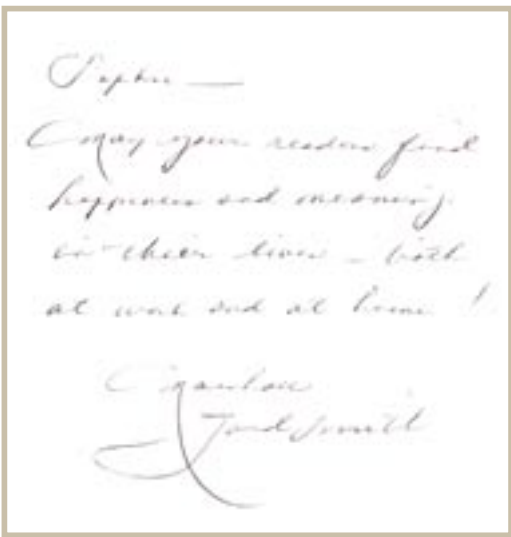 Sophie —
May your readers find
happiness and meaning
in their lives — both
at work and at home!
Marshall
Goldsmith